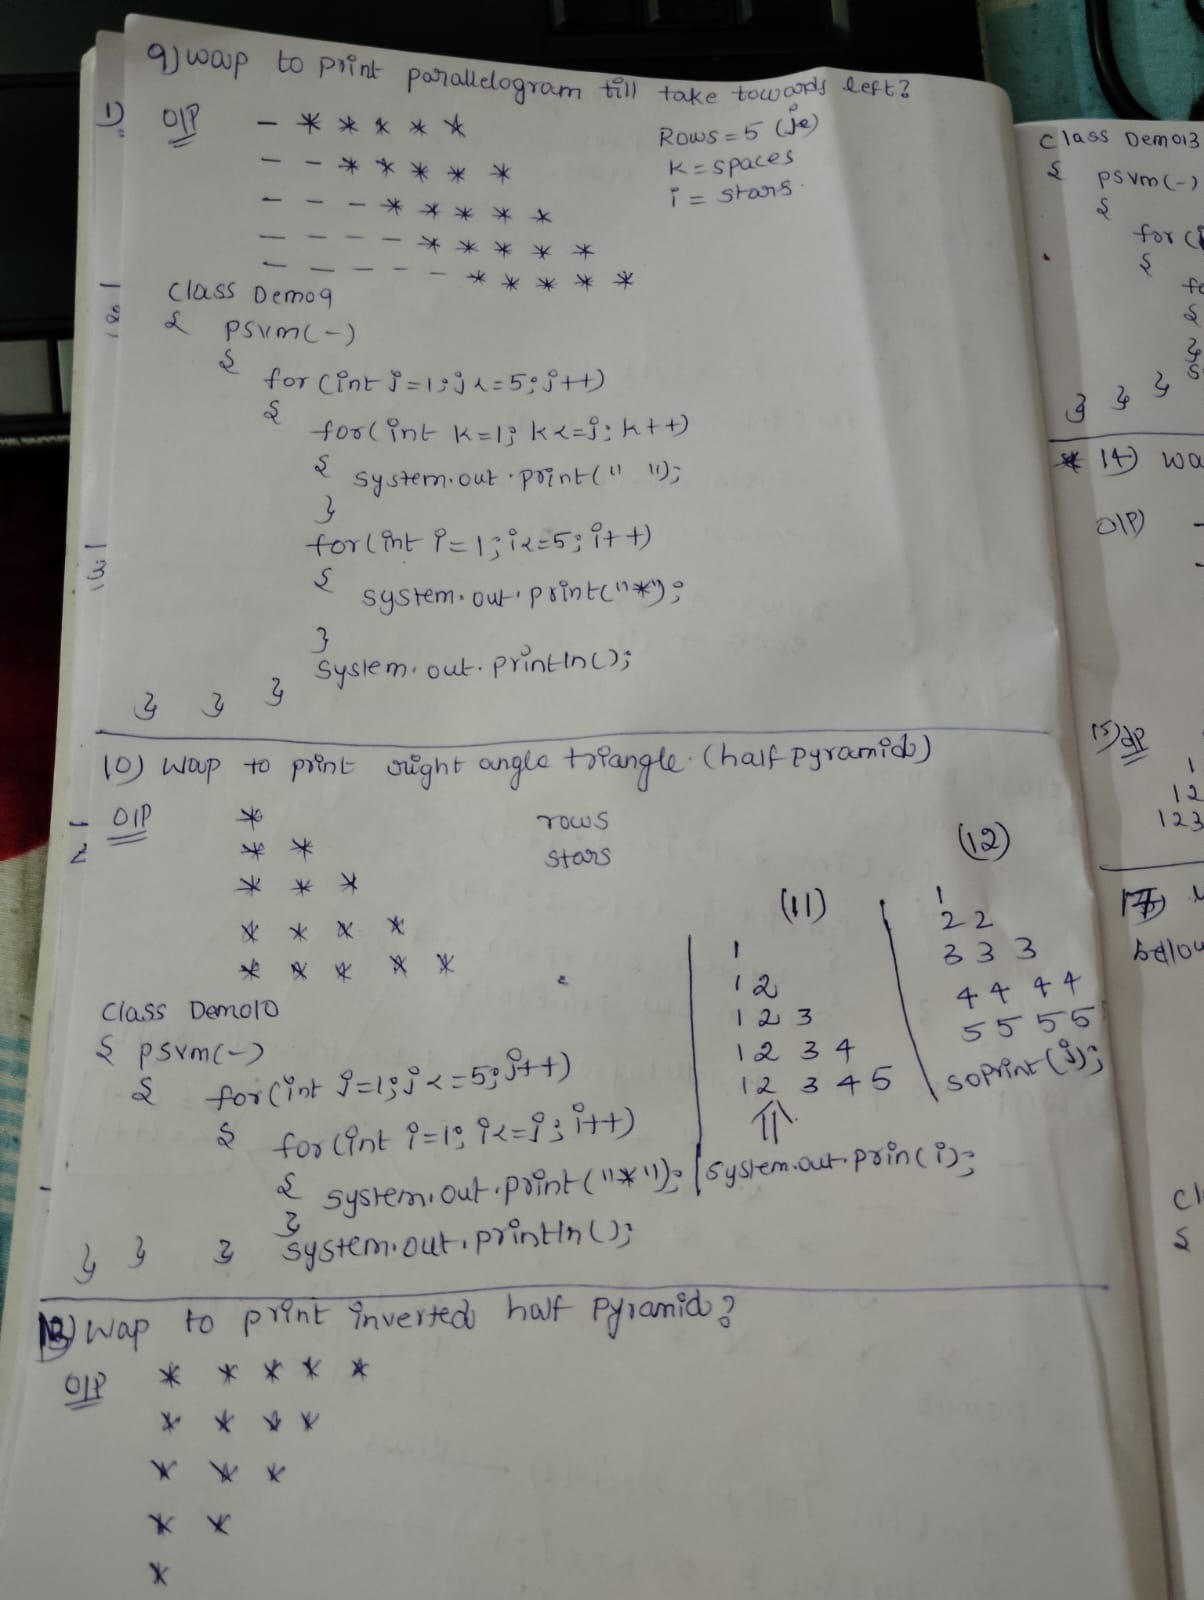 9) wap to print parallelogram till take towards left?
1) O|P - * * * * *
Rows = 5 (je)
- - * * * * *
k = spaces
- - - * * * * *
i = stars.
- - - - * * * * *
- - - - - * * * * *
class Demo9
{ psvm(-)
{
for (int j=1; j<=5; j++)
{
for( int k=1; k<=j; k++)
{ system.out.print(" ");
}
for(int i=1; i<=5; i++)
{
system.out.print("*");
}
system.out.println();
} } }
10) wap to print right angle triangle. (half pyramid)
O|P *
rows
* *
stars
* * *
* * * *
* * * * *
(11)
1
1 2
1 2 3
1 2 3 4
1 2 3 4 5
(12)
1
2 2
3 3 3
4 4 4 4
5 5 5 5
soprint(j);
class Demo10
{ psvm(-)
{ for(int j=1; j<=5; j++)
{ for (int i=1; i<=j; i++)
{ system.out.print("*"); | system.out.prin(i);
}
} } } system.out.println();
13) wap to print inverted half pyramid?
O|P * * * * *
* * * *
* * *
* *
*
class Demo13
{ psvm(-)
{
for (
{
{
}
} } }
* 14) wa
O|P) -
-
15) 
1
12
123
17)
cl
{